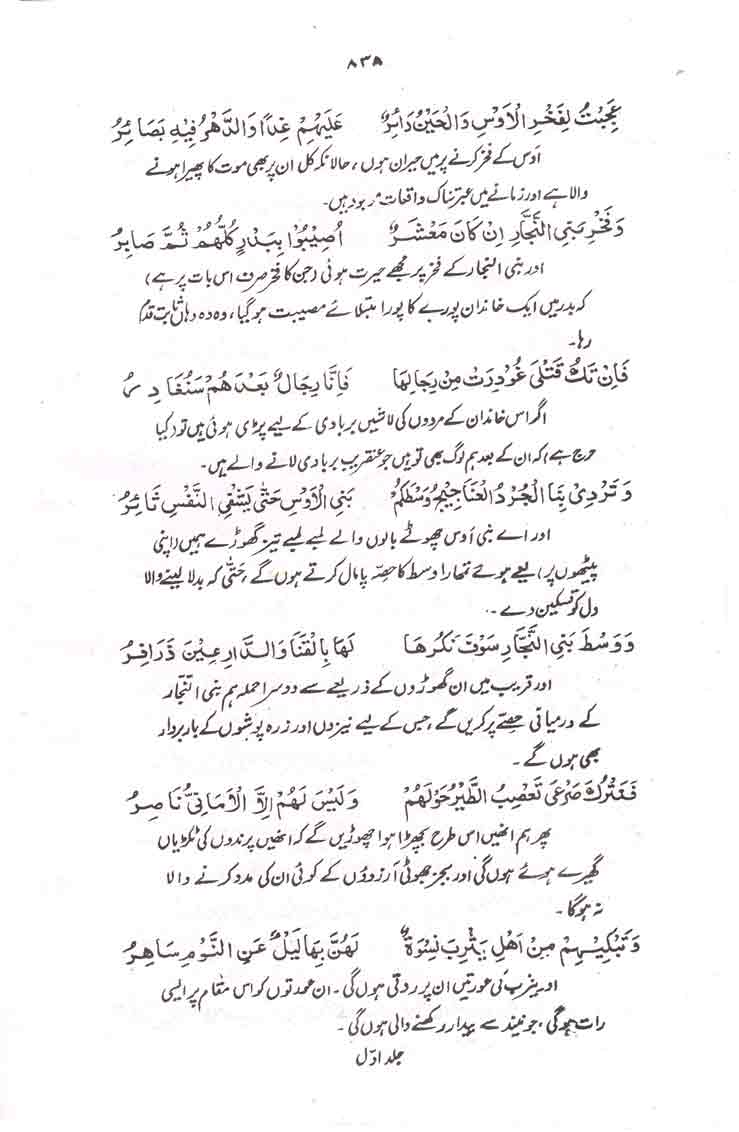 ۸۳۵
عَجِبْتُ لِفَخْرِ الْاَوْسِ وَالْحَيْنُ دَائِرٌ عَلَيْهِمْ غِدًا وَالدَّهْرُ فِيْهِ بَصَائِرُ
اَوس کے فخر کرنے پر میں حیران ہوں، حالانکہ کل ان پر بھی موت کا پھیرا ہونے
والا ہے اور زمانے میں عبرتناک واقعات موجود ہیں۔
وَفَخْرِ بَنِي النَّجَّارِ اِنْ كَانَ مَعْشَرٌ اُصِيْبُوْا بِبَدْرٍ كُلُّهُمْ ثُمَّ صَابِرُ
اور بنی النجار کے فخر پر مجھے حیرت ہوئی (جن کا فخر صرف اس بات پر ہے)
کہ بدر میں ایک خاندان پورے کا پورا مبتلائے مصیبت ہو گیا، وہ وہ وہاں ثابت قدم
رہا۔
فَاِنْ تَكُ قَتْلَى غُوْدِرَتْ مِنْ رِجَالِهَا فَاِنَّا رِجَالٌ بَعْدَهُمْ سَنُغَادِرُ
اگر اس خاندان کے مردوں کی لاشیں بربادی کے لیے پڑی ہوئی ہیں تو (کیا
حرج ہے) کہ ان کے بعد ہم لوگ بھی تو ہیں جو عنقریب بربادی لانے والے ہیں۔
وَتَرْدِيْ بِنَا الْجُرْدُ الْعَنَاجِيْجُ وَسْطَكُمْ بَنِي الْاَوْسِ حَتّٰى يَشْفِي النَّفْسَ ثَائِرُ
اور اے بنی اَوس چھوٹے بالوں والے لمبے لمبے تیز گھوڑے ہمیں (اپنی
پیٹھوں پر) لیے ہوئے تمھارا وسط کا حصّہ پامال کرتے ہوں گے، حتّٰی کہ بدلا لینے والا
دل کو تسکین دے۔
وَوَسْطَ بَنِي النَّجَّارِ سَوْفَ نَكُرُّهَا لَهَا بِالْقَنَا وَالدَّارِعِيْنَ زَرَافِرُ
اور قریب میں ان گھوڑوں کے ذریعے سے دوسرا حملہ ہم بنی النجّار
کے درمیانی حصّے پر کریں گے، جس کے لیے نیزوں اور زرہ پوشوں کے باربردار
بھی ہوں گے۔
فَنَتْرُكُ صَرْعٰى تَعْصِبُ الطَّيْرُ حَوْلَهُمْ وَلَيْسَ لَهُمْ اِلَّا الْاَمَانِيَّ نَاصِرُ
پھر ہم انھیں اس طرح پچھڑا ہوا چھوڑیں گے کہ انھیں پرندوں کی ٹکڑیاں
گھیرے ہوئے ہوں گی اور بجز جھوٹی آرزوؤں کے کوئی ان کی مدد کرنے والا
نہ ہوگا۔
وَتَبْكِيْهِمْ مِنْ اَهْلِ يَثْرِبَ نِسْوَةٌ لَهُنَّ بِهَا لَيْلٌ عَنِ النَّوْمِ سَاهِرُ
اور یثرب کی عورتیں ان پر روتی ہوں گی۔ ان عورتوں کو اس مقام پر ایسی
رات ہوگی، جو نیند سے بیدار رکھنے والی ہوں گی۔
جلد اوّل